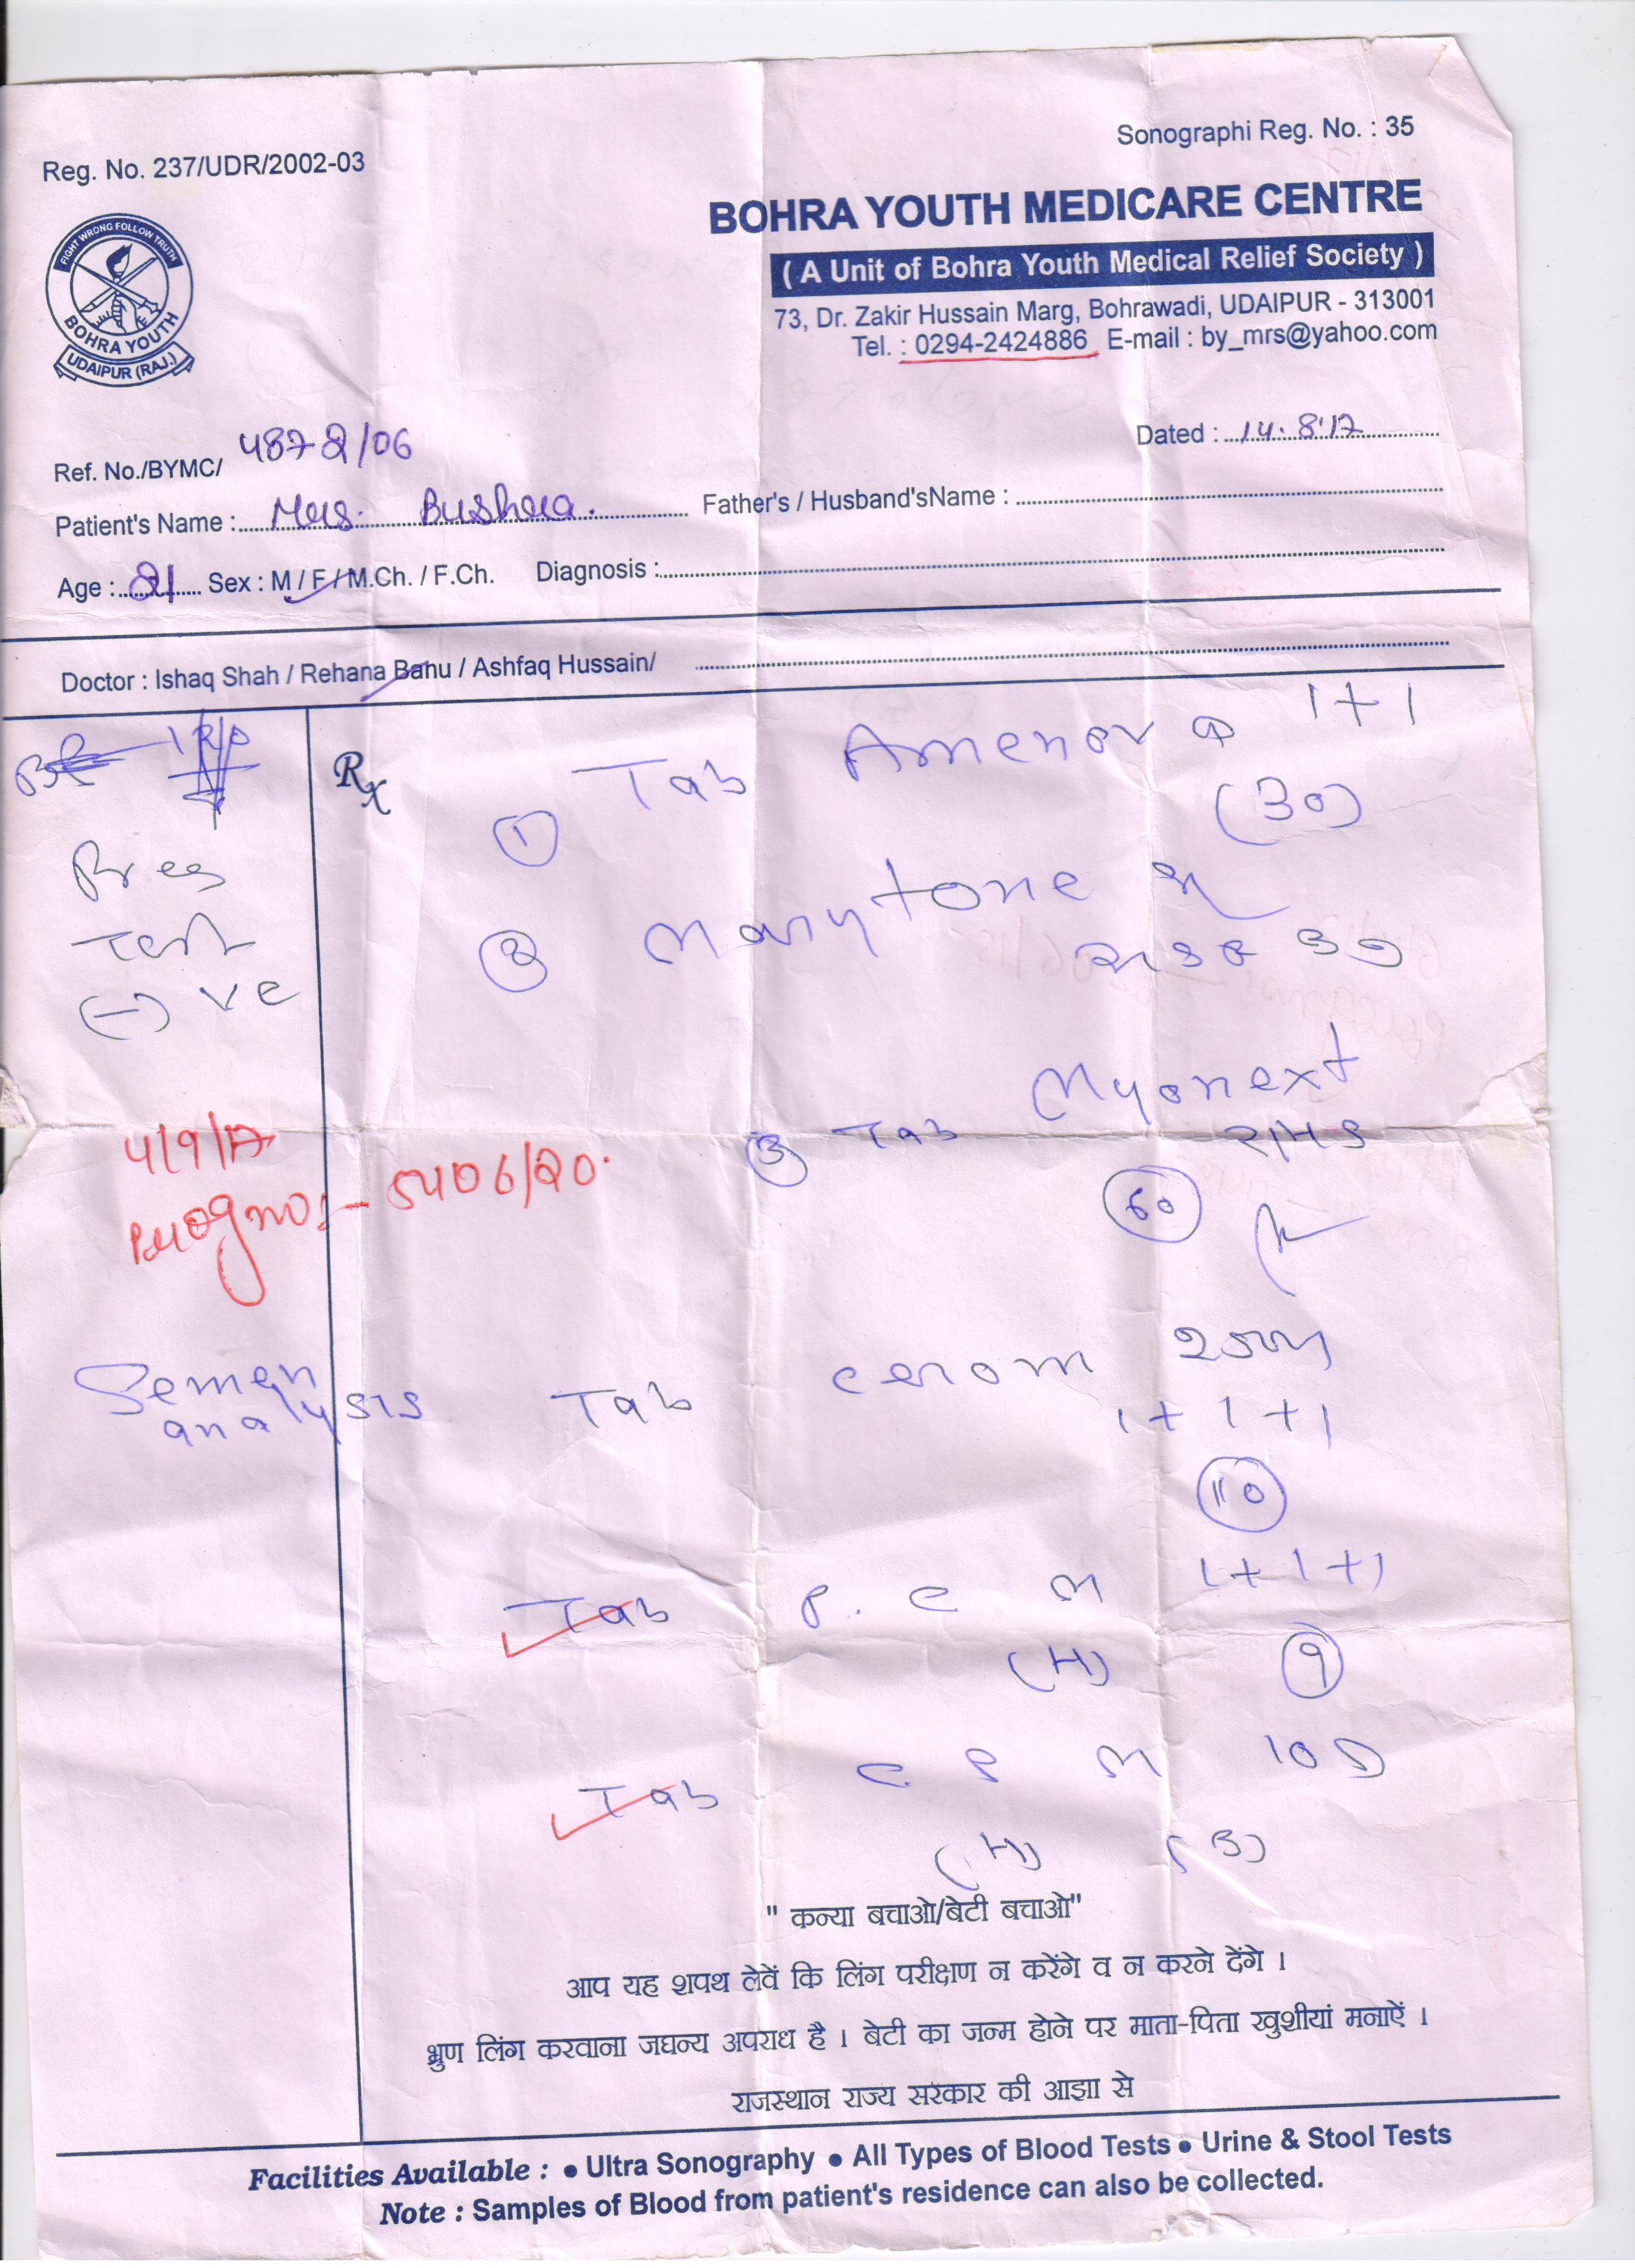 Sonographi Reg. No. : 35
Reg. No. 237/UDR/2002-03
BOHRA YOUTH MEDICARE CENTRE
( A Unit of Bohra Youth Medical Relief Society )
73, Dr. Zakir Hussain Marg, Bohrawadi, UDAIPUR - 313001
Tel. : 0294-2424886 E-mail : by_mrs@yahoo.com
FIGHT WRONG FOLLOW TRUTH
BOHRA YOUTH
UDAIPUR (RAJ.)
Dated : 14.8.17
Ref. No./BYMC/ 4872/06
Patient's Name : Mrs. Bushra. Father's / Husband'sName :
Age : 21 Sex : M / F / M.Ch. / F.Ch. Diagnosis :
Doctor : Ishaq Shah / Rehana Banu / Ashfaq Hussain/
Rx
① Tab Amenor 1+1
(30)
Preg
Test
(-) ve
② Marytone
③ Tab Myonext
60
4/9/17
Prog no:- 5406/20.
Semen
analysis
Tab cerom 250
1+1+1
10
Tab P. C M 1+1+1
(H) 9
Tab C P M 10D
(H) (3)
" कन्या बचाओ/बेटी बचाओ"
आप यह शपथ लेवें कि लिंग परीक्षण न करेंगे व न करने देंगे ।
भ्रुण लिंग करवाना जघन्य अपराध है । बेटी का जन्म होने पर माता-पिता खुशीयां मनाऐं ।
राजस्थान राज्य सरकार की आज्ञा से
Facilities Available : ● Ultra Sonography ● All Types of Blood Tests ● Urine & Stool Tests
Note : Samples of Blood from patient's residence can also be collected.